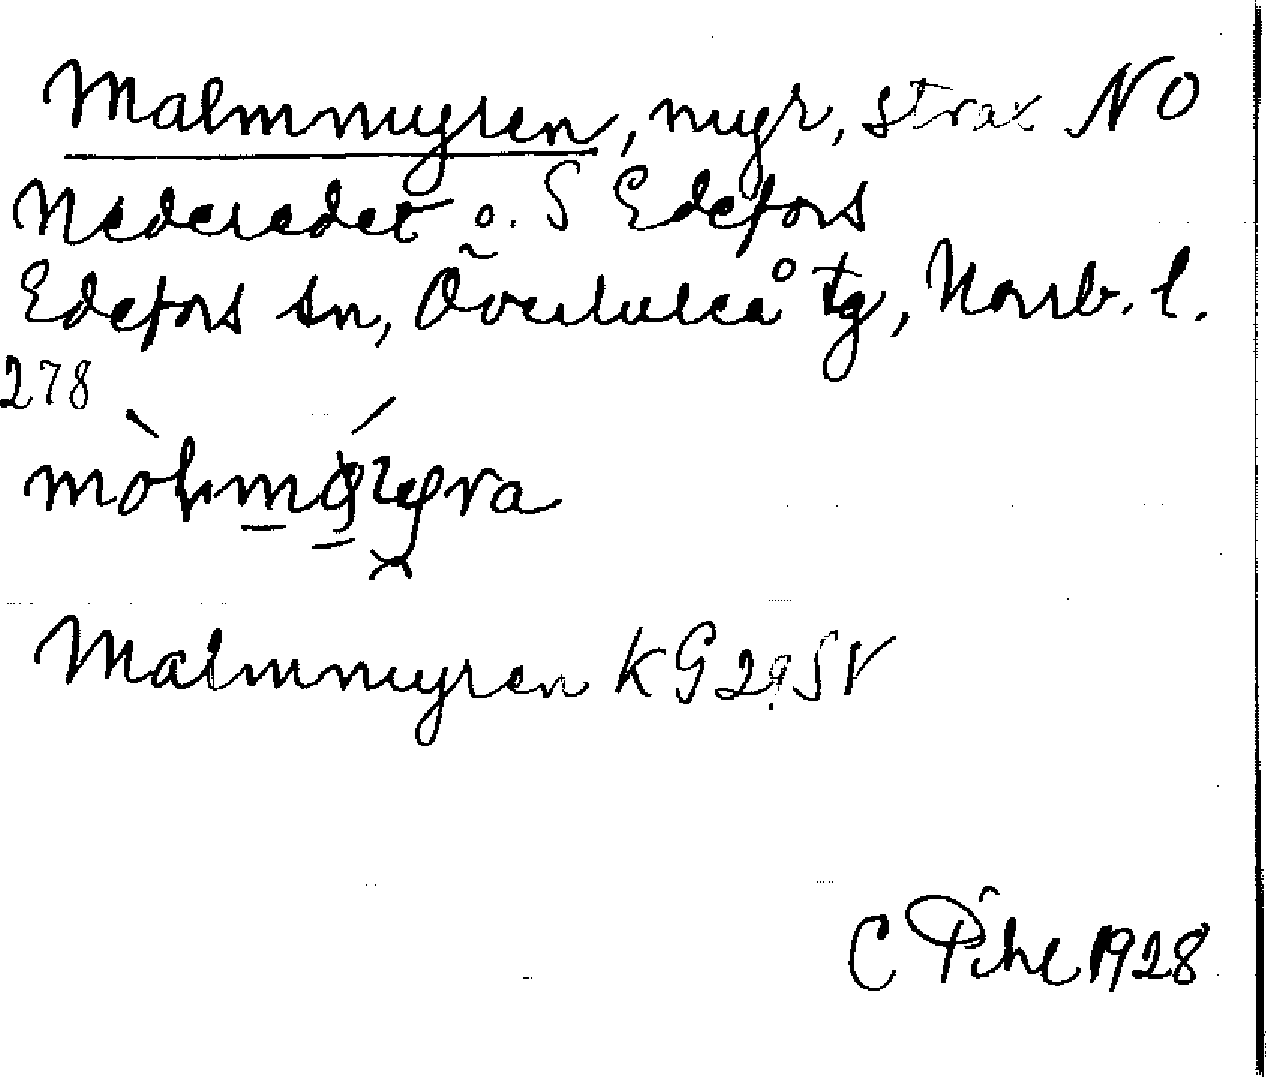 Malmmyren, myr, strax NO
Nederedet o. S Edefors
Edefors sn, Överluleå tg, Norrb. l.
278
Malmmyren KG 29 SV
C Pihl 1928